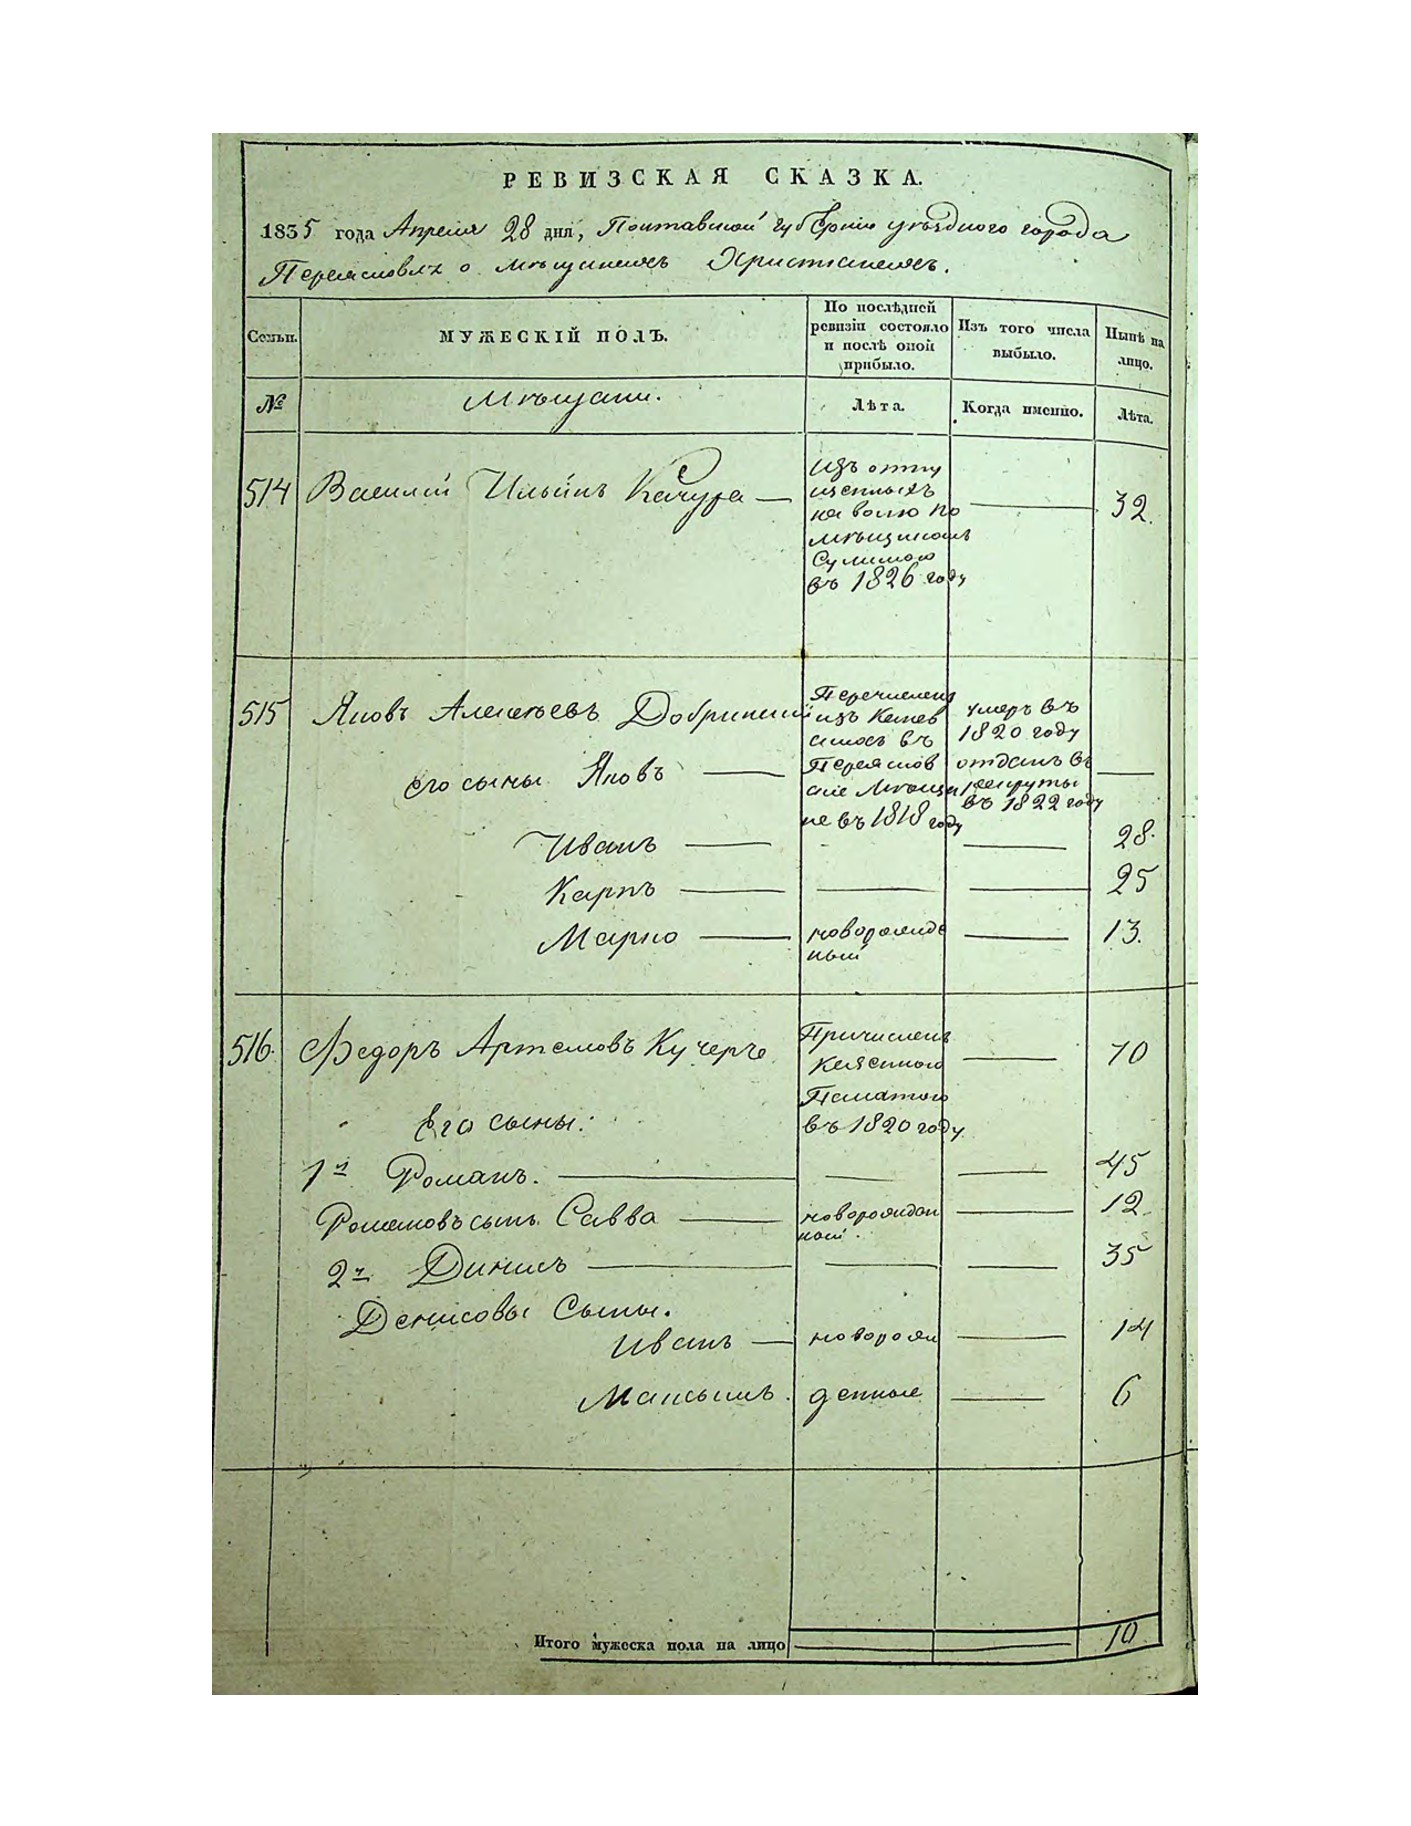 РЕВИЗСКАЯ СКАЗКА.
1835 года Апреля 28 дня, Полтавской губернiи уѣзднаго города
Переяславля о мѣщанахъ Христианахъ.
Семьи. МУЖЕСКIЙ ПОЛЪ. По послѣдней ревизiи состояло и послѣ оной прибыло. Изъ того числа выбыло. Нынѣ на лицо.
№ Мѣщани. Лѣта. Когда именно. Лѣта.
514 Василий Ильинъ Качура — 32.
Изъ отпу
щенныхъ
на волю по
мѣщикомъ
Сулимою
въ 1826 году
515 Яковъ Алексѣевъ Добринский
Перечислены
изъ Киев
въ
Переяслов
ские Мѣща
не въ 1818 году
умеръ въ
1820 году
его сыны Яковъ —
отданъ въ
рекруты
въ 1822 году
Иванъ — 28.
Карпъ — 25
Марко — новорожде
ный — 13.
516. Федоръ Артемовъ Кучеръ — 70
Причисленъ
Казенною
Палатою
въ 1820 году
Его сыны:
1й Романъ. — 45
Романовъ сынъ Савва — новорожден
ный. — 12.
2й Динисъ — 35
Денисовы Сыны.
Иванъ — новорож — 14
Максымъ. денные — 6
Итого мужеска пола на лицо 10